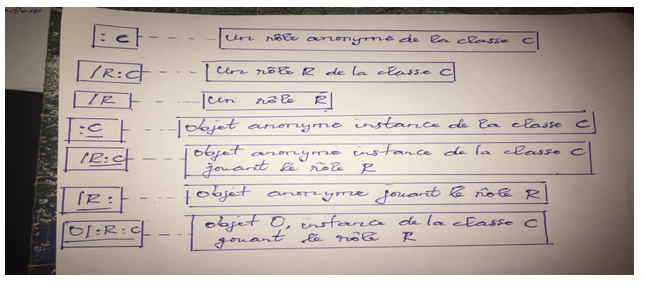 : C un rôle anonyme de la classe C
/R:C un rôle R de la classe C
/R un rôle R
:C objet anonyme instance de la classe C
/R:C objet anonyme instance de la classe C
jouant le rôle R
/R: objet anonyme jouant le rôle R
O/:R:C objet O, instance de la classe C
jouant le rôle R